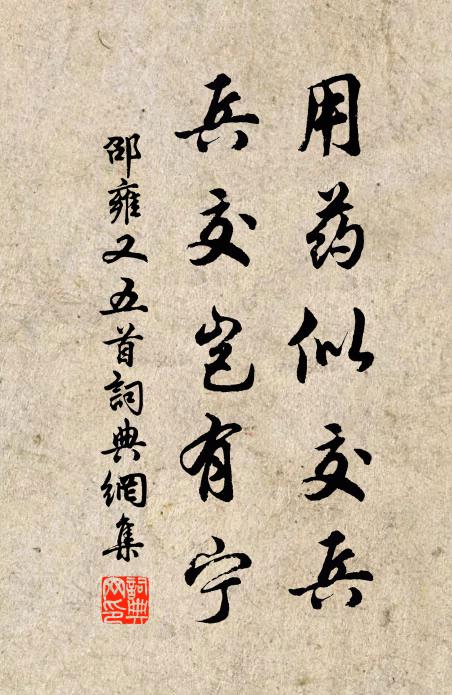 用药似交兵
兵交岂有宁
邵雍又五首詞典網集
詞典网印